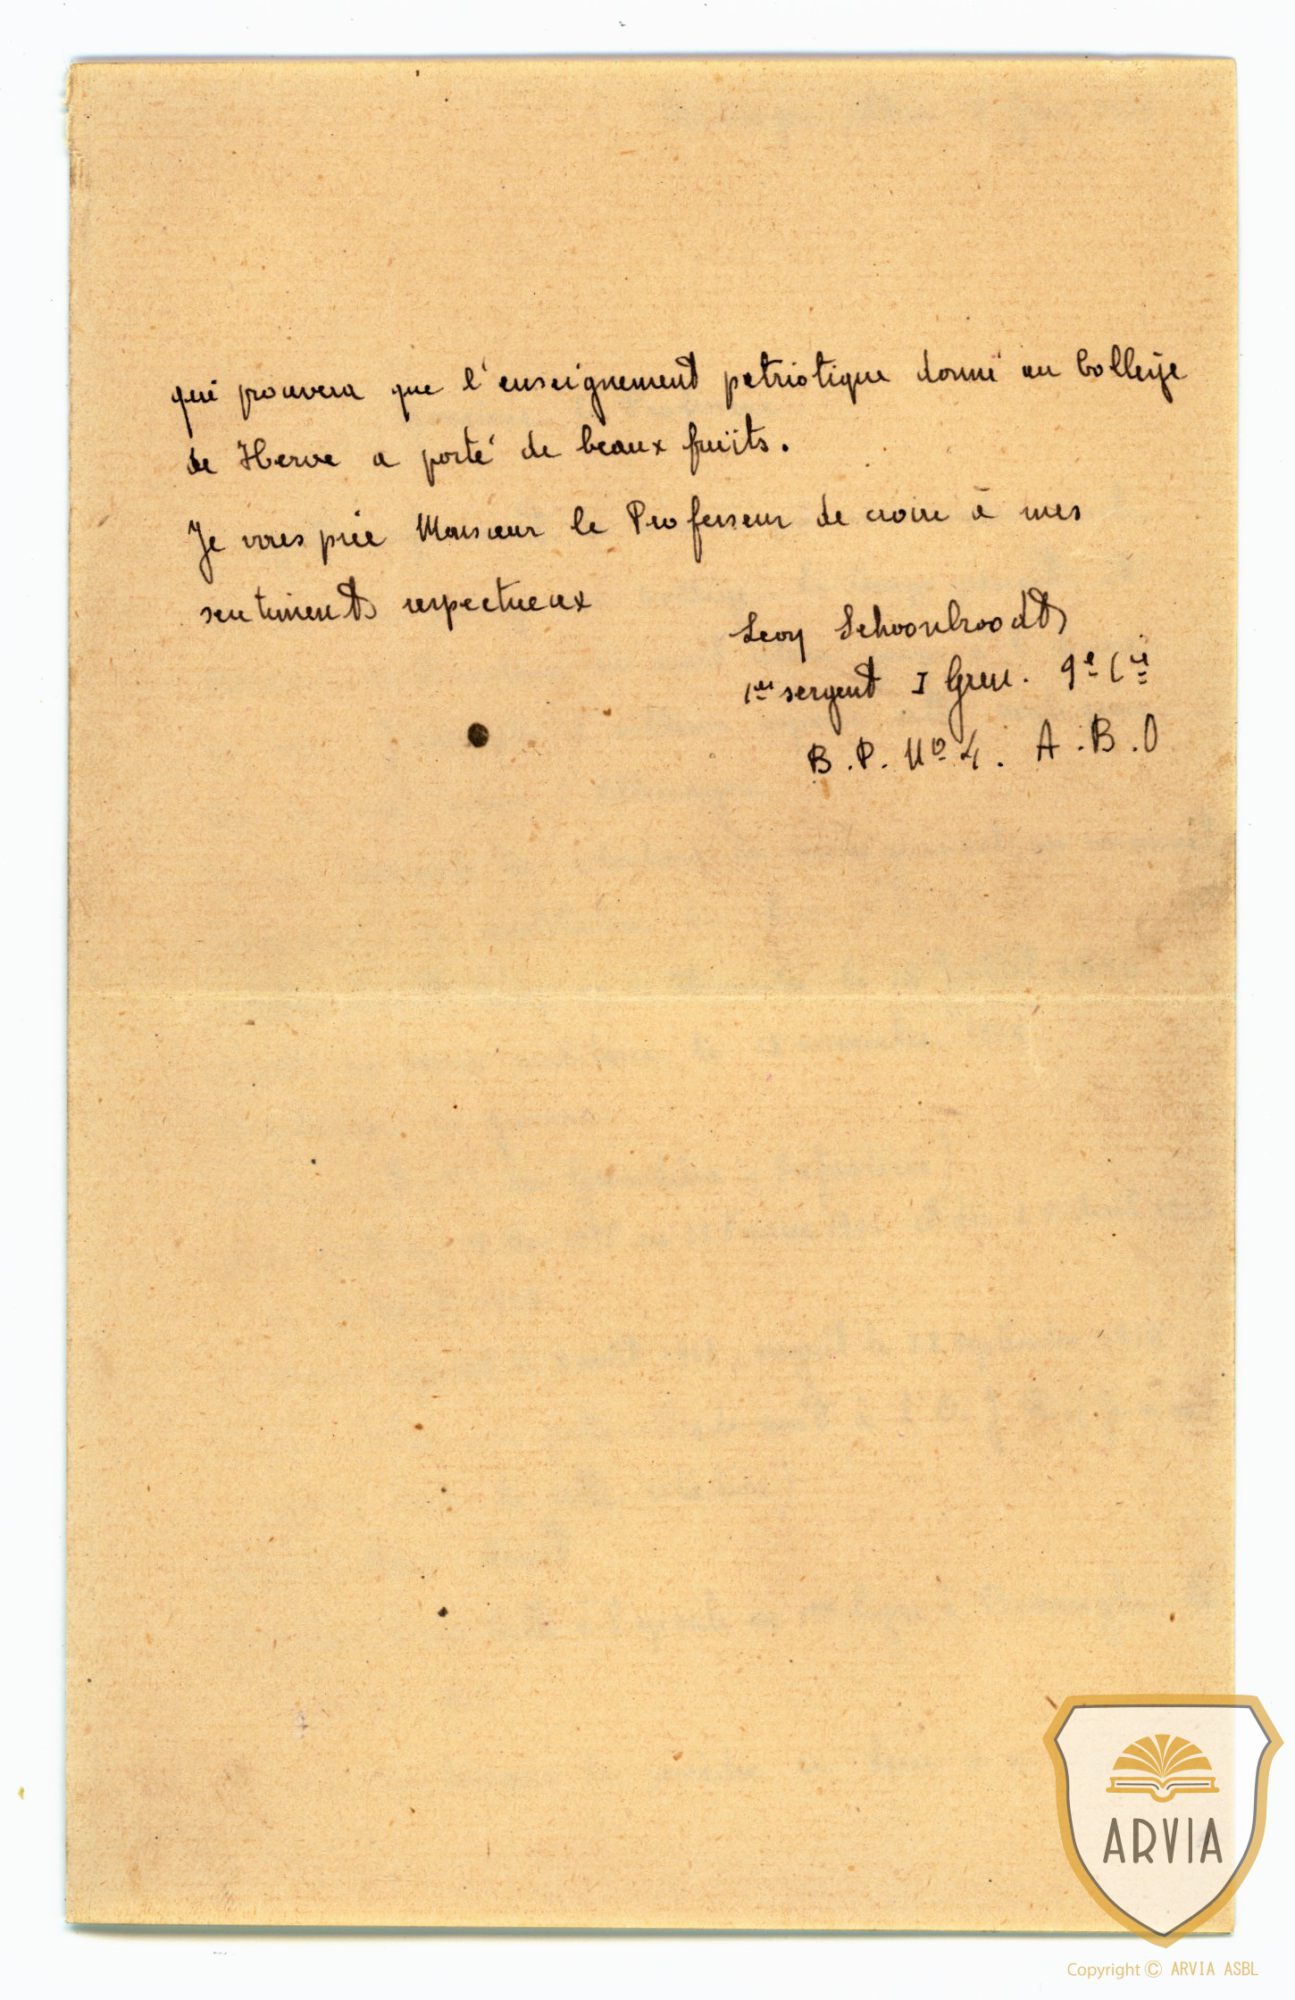 qui prouvera que l'enseignement patriotique donné au Collège
de Herve a porté de beaux fruits.
Je vous prie Monsieur le Professeur de croire à mes
sentiments respectueux
Leon Schoonbroodt
1er sergent I Gren. 9e Cie
B.P. No 4. A.B.O
ARVIA
Copyright © ARVIA ASBL